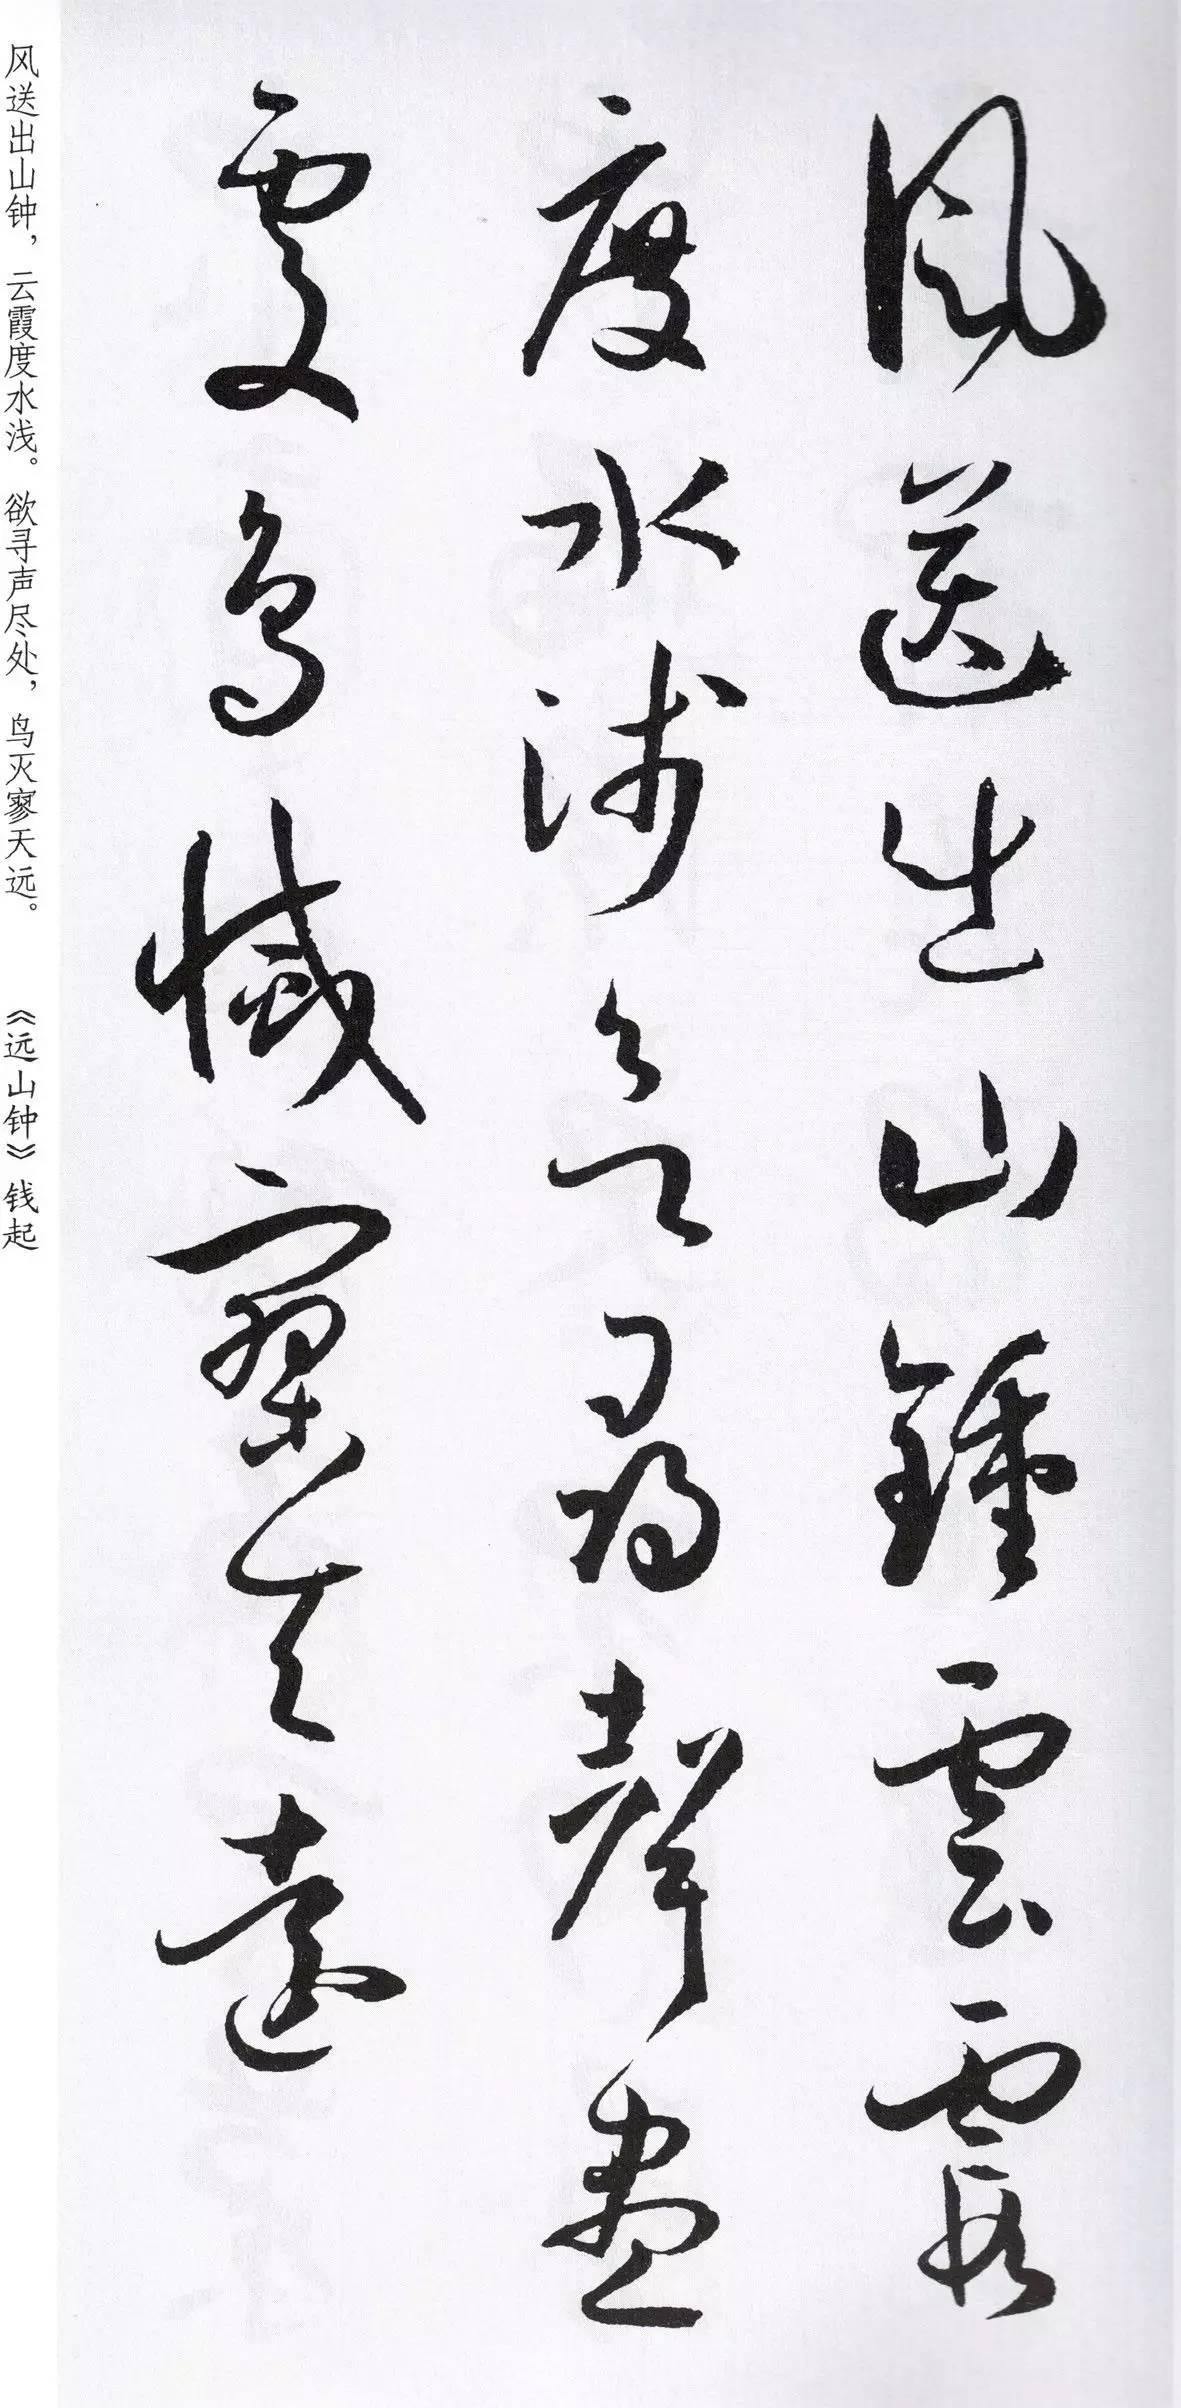 風送出山鍾雲霞
度水浅欲尋聲盡
處鳥滅寥天遠
风送出山钟，云霞度水浅。欲寻声尽处，鸟灭寥天远。 《远山钟》钱起